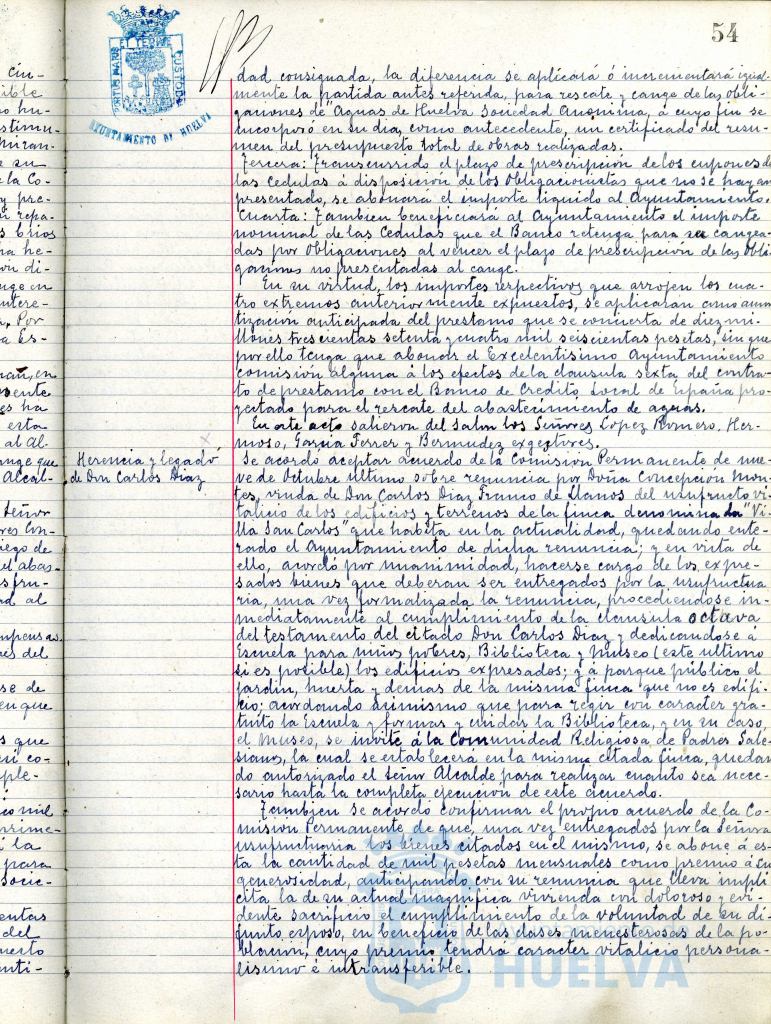 54
PORTUS MARIS ET TERRAE CUSTODIA
AYUNTAMIENTO DE HUELVA
dad consignada, la diferencia se aplicará ó incrementará igual-
mente la partida antes referida, para rescate y cange de las obli-
gaciones de "Aguas de Huelva Sociedad Anonima, á cuyo fin se
incorporó en su dia, como antecedente, un certificado del resu-
men del presupuesto total de obras realizadas.
Tercera: Transcurrido el plazo de prescripción de los cupones de
las Cedulas á disposición de los Obligacionistas que no se hayan
presentado, se abonará el importe liquido al Ayuntamiento.
Cuarta: Tambien beneficiará al Ayuntamiento el importe
nominal de las Cedulas que el Banco retenga para ser cangea-
das por Obligaciones al vencer el plazo de prescripción de las Obli-
gaciones no presentadas al cange.
En su virtud, los importes respectivos que arrojen los cua-
tro extremos anteriormente expuestos, se aplicarán como amor-
tización anticipada del prestamo que se concierta de diez mi-
llones trescientas setenta y cuatro mil seiscientas pesetas, sin que
por ello tenga que abonar el Excelentisimo Ayuntamiento
comisión alguna á los efectos de la clausula sexta del contra-
to de prestamo con el Banco de Credito Local de España pro-
yectado para el rescate del abastecimiento de aguas.
En este acto salieron del Salon los Señores Lopez Romero, Her-
moso, Garcia Ferrer y Bermudez exgestores.
Herencia y legado
de Don Carlos Diaz
Se acordó aceptar acuerdo de la Comisión Permanente de nue-
ve de Octubre último sobre renuncia por Doña Concepcion Mon-
tes, viuda de Don Carlos Diaz Franco de Llanos del usufructo vi-
talicio de los edificios y terrenos de la finca denominada "Vi-
lla San Carlos" que habita en la actualidad, quedando ente-
rado el Ayuntamiento de dicha renuncia; y en vista de
ello, acordó por unanimidad, hacerse cargo de los expre-
sados bienes que deberan ser entregados por la usufructua-
ria, una vez formalizada la renuncia, procediendose in-
mediatamente al cumplimiento de la clausula octava
del testamento del citado Don Carlos Diaz y dedicandose á
Escuela para niños pobres, Biblioteca y Museo (este ultimo
si es posible) los edificios expresados; y á parque público el
jardin, huerta y demas de la misma finca que no es edifi-
cio; acordando asimismo que para regir con caracter gra-
tuito la Escuela y formar y cuidar la Biblioteca, y en su caso,
el Museo, se invite á la Comunidad Religiosa de Padres Sale-
sianos, la cual se establecerá en la misma citada finca, quedan-
do autorizado el Señor Alcalde para realizar cuanto sea nece-
sario hasta la completa ejecución de este acuerdo.
Tambien se acordó confirmar el propio acuerdo de la Co-
misión Permanente de que, una vez entregados por la Señora
usufructuaria los bienes citados en el mismo, se abone á es-
ta la cantidad de mil pesetas mensuales como premio á su
generosidad, anticipando con su renuncia que lleva impli-
cita la de su actual magnifica vivienda con doloroso y evi-
dente sacrificio el cumplimiento de la voluntad de su di-
funto esposo, en beneficio de las clases menesterosas de la po-
blación, cuyo premio tendra caracter vitalicio persona-
lisimo é intransferible.
HUELVA